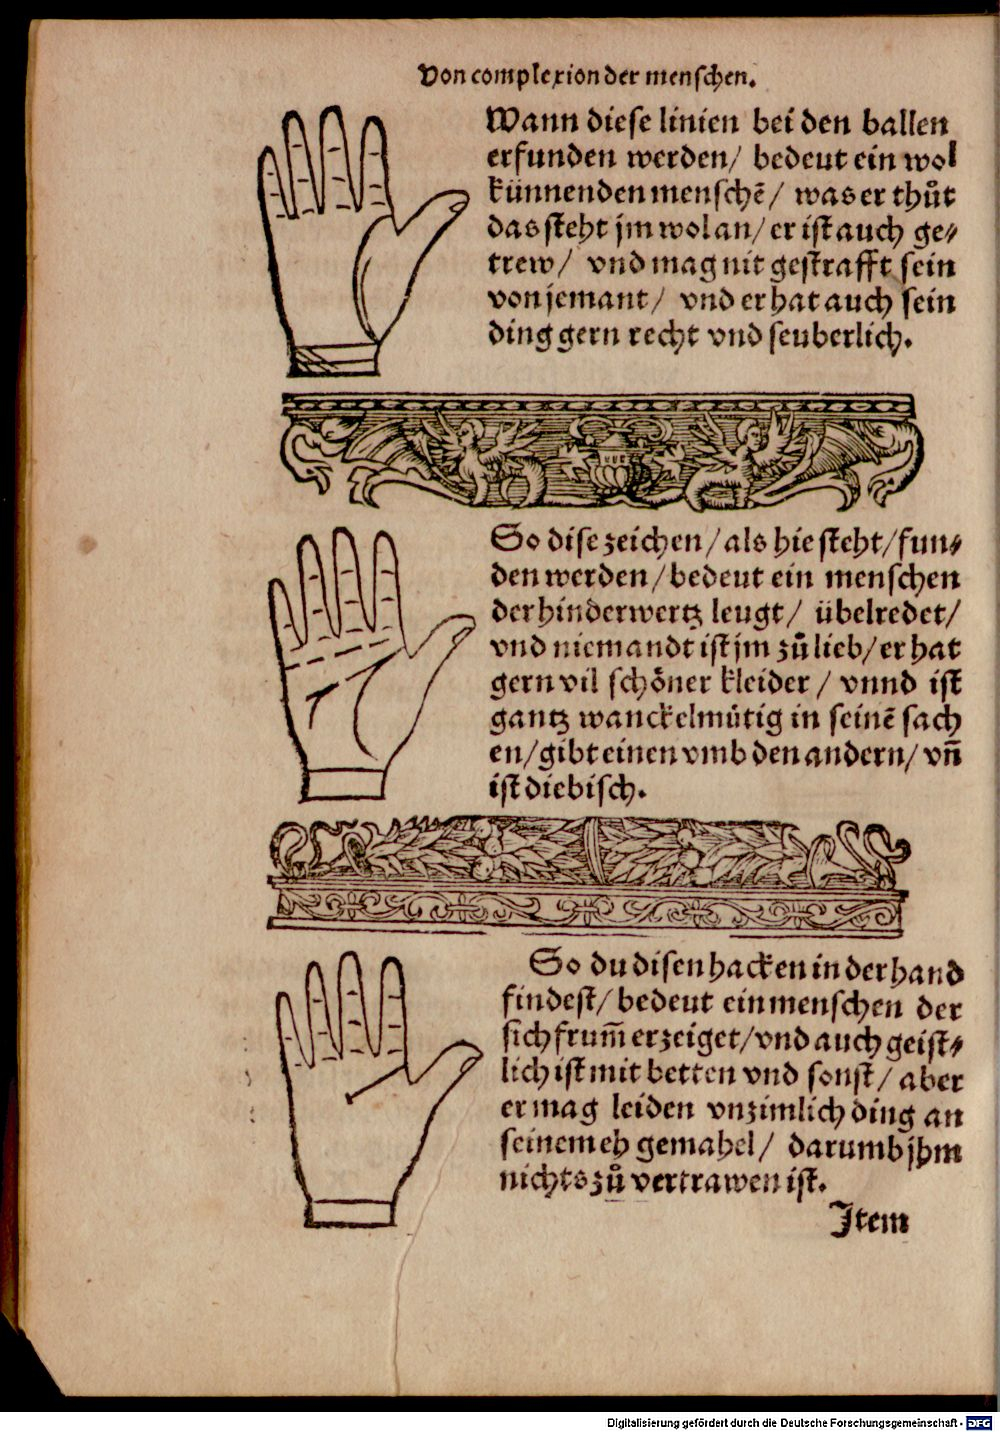 Von complexion der menschen.
Wann diese linien bei den ballen
erfunden werden/ bedeut ein wol
künnenden menschē/ was er thůt
das steht jm wol an/ er ist auch ge⸗
trew/ vnd mag nit gestrafft sein
von jemant/ vnd er hat auch sein
ding gern recht vnd seuberlich.
So dise zeichen/ als hie steht/ fun⸗
den werden/ bedeut ein menschen
der hinderwertz leugt/ übelredet/
vnd niemandt ist jm zů lieb/ er hat
gern vil schöner kleider/ vnnd ist
gantz wanckelmütig in seinē sach
en/ gibt einen vmb den andern/ vn̄
ist diebisch.
So du disen hacken in der hand
findest/ bedeut ein menschen der
sich frum̄ erzeiget/ vnd auch geist⸗
lich ist mit betten vnd sonst/ aber
er mag leiden vnzimlich ding an
seinem eh gemahel/ darumb jhm
nichts zů vertrawen ist.
Item
Digitalisierung gefördert durch die Deutsche Forschungsgemeinschaft - DFG